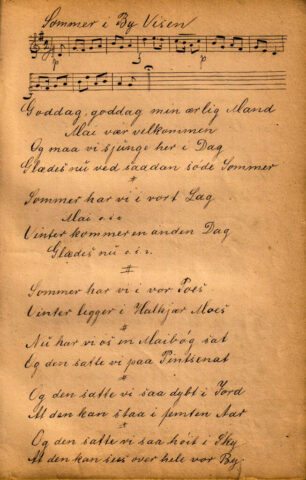 Sommer i By Visen
p
p
Goddag, goddag min ærlig Mand
Mai vær velkommen
Og maa vi sjunge her i Dag
Glædes nu ved saadan søde Sommer
Sommer har vi i vort Lag
Mai o s v
Vinter kommer en anden Dag
Glædes nu o s v.
Sommer har vi i vor Poes
Vinter legger i Hatkjær Moes
Nu har vi os en Maibóg sat
Og den satte vi paa Pintsenat
Og den satte vi saa dybt i Jord
At den kan staa i femten Aar
Og den satte vi saa høit i Sky
At den kan sees over hele vor By.